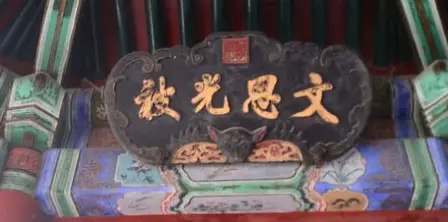 文思光被